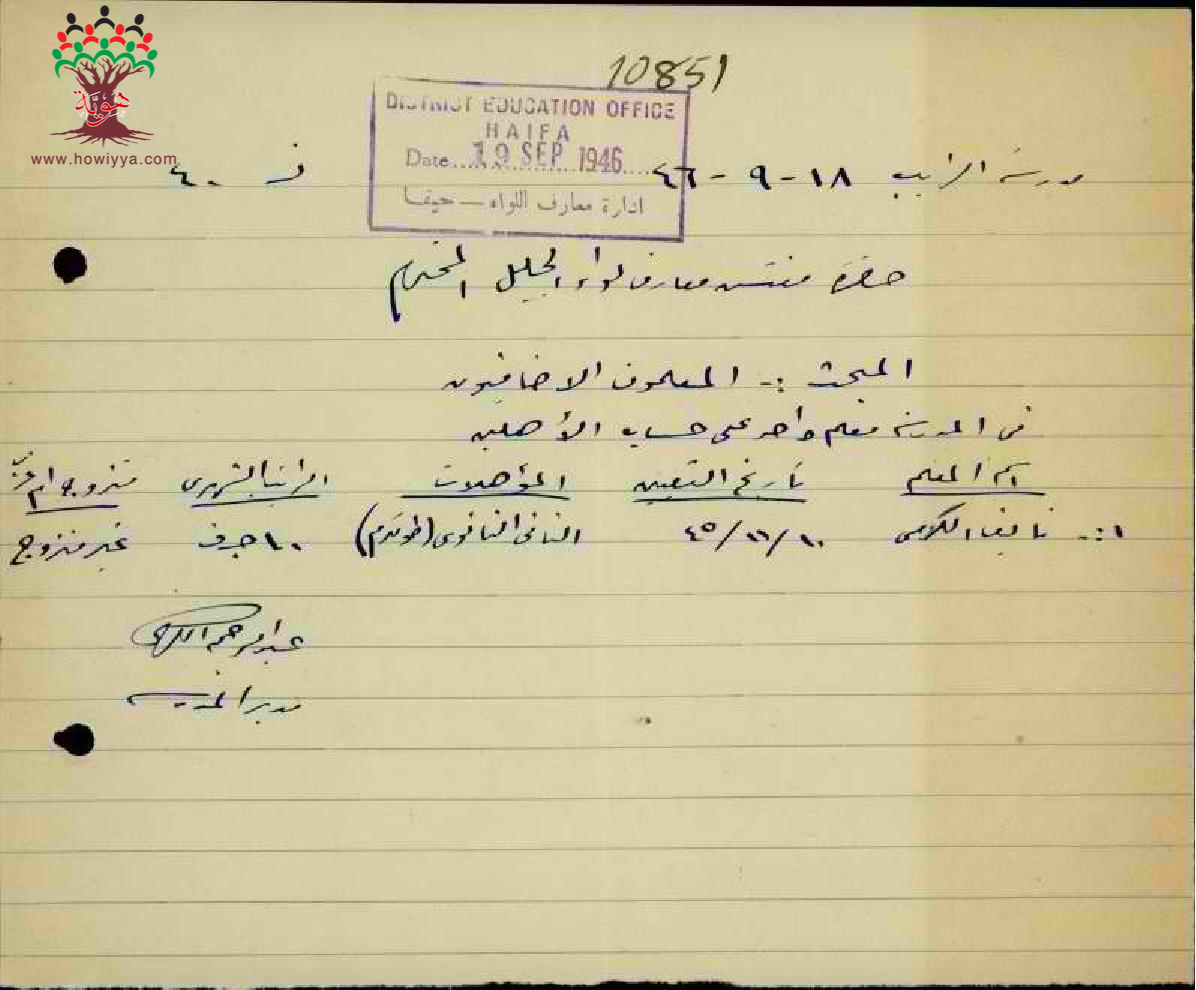 هوية
www.howiyya.com
10851
DISTRICT EDUCATION OFFICE
HAIFA
Date.... 19 SEP 1946
ادارة معارف اللواء — حيفا
مدرسة الزيب ١٨-٩-٤٦ ف ٤٠
حضرة مفتش معارف لواء الجليل المحترم
المبحث :- المعلمون الاضافيون
في المدرسة معلم واحد على حساب الأهلين
اسم المعلم تاريخ التعيين المؤهلات الراتب الشهري متزوج ام
١:- نايف ١٠/١١/٤٥ الثاني الثانوي (طولكرم) ١٠ جنيه غير متزوج
عبد الرحمن
مدير المدرسة